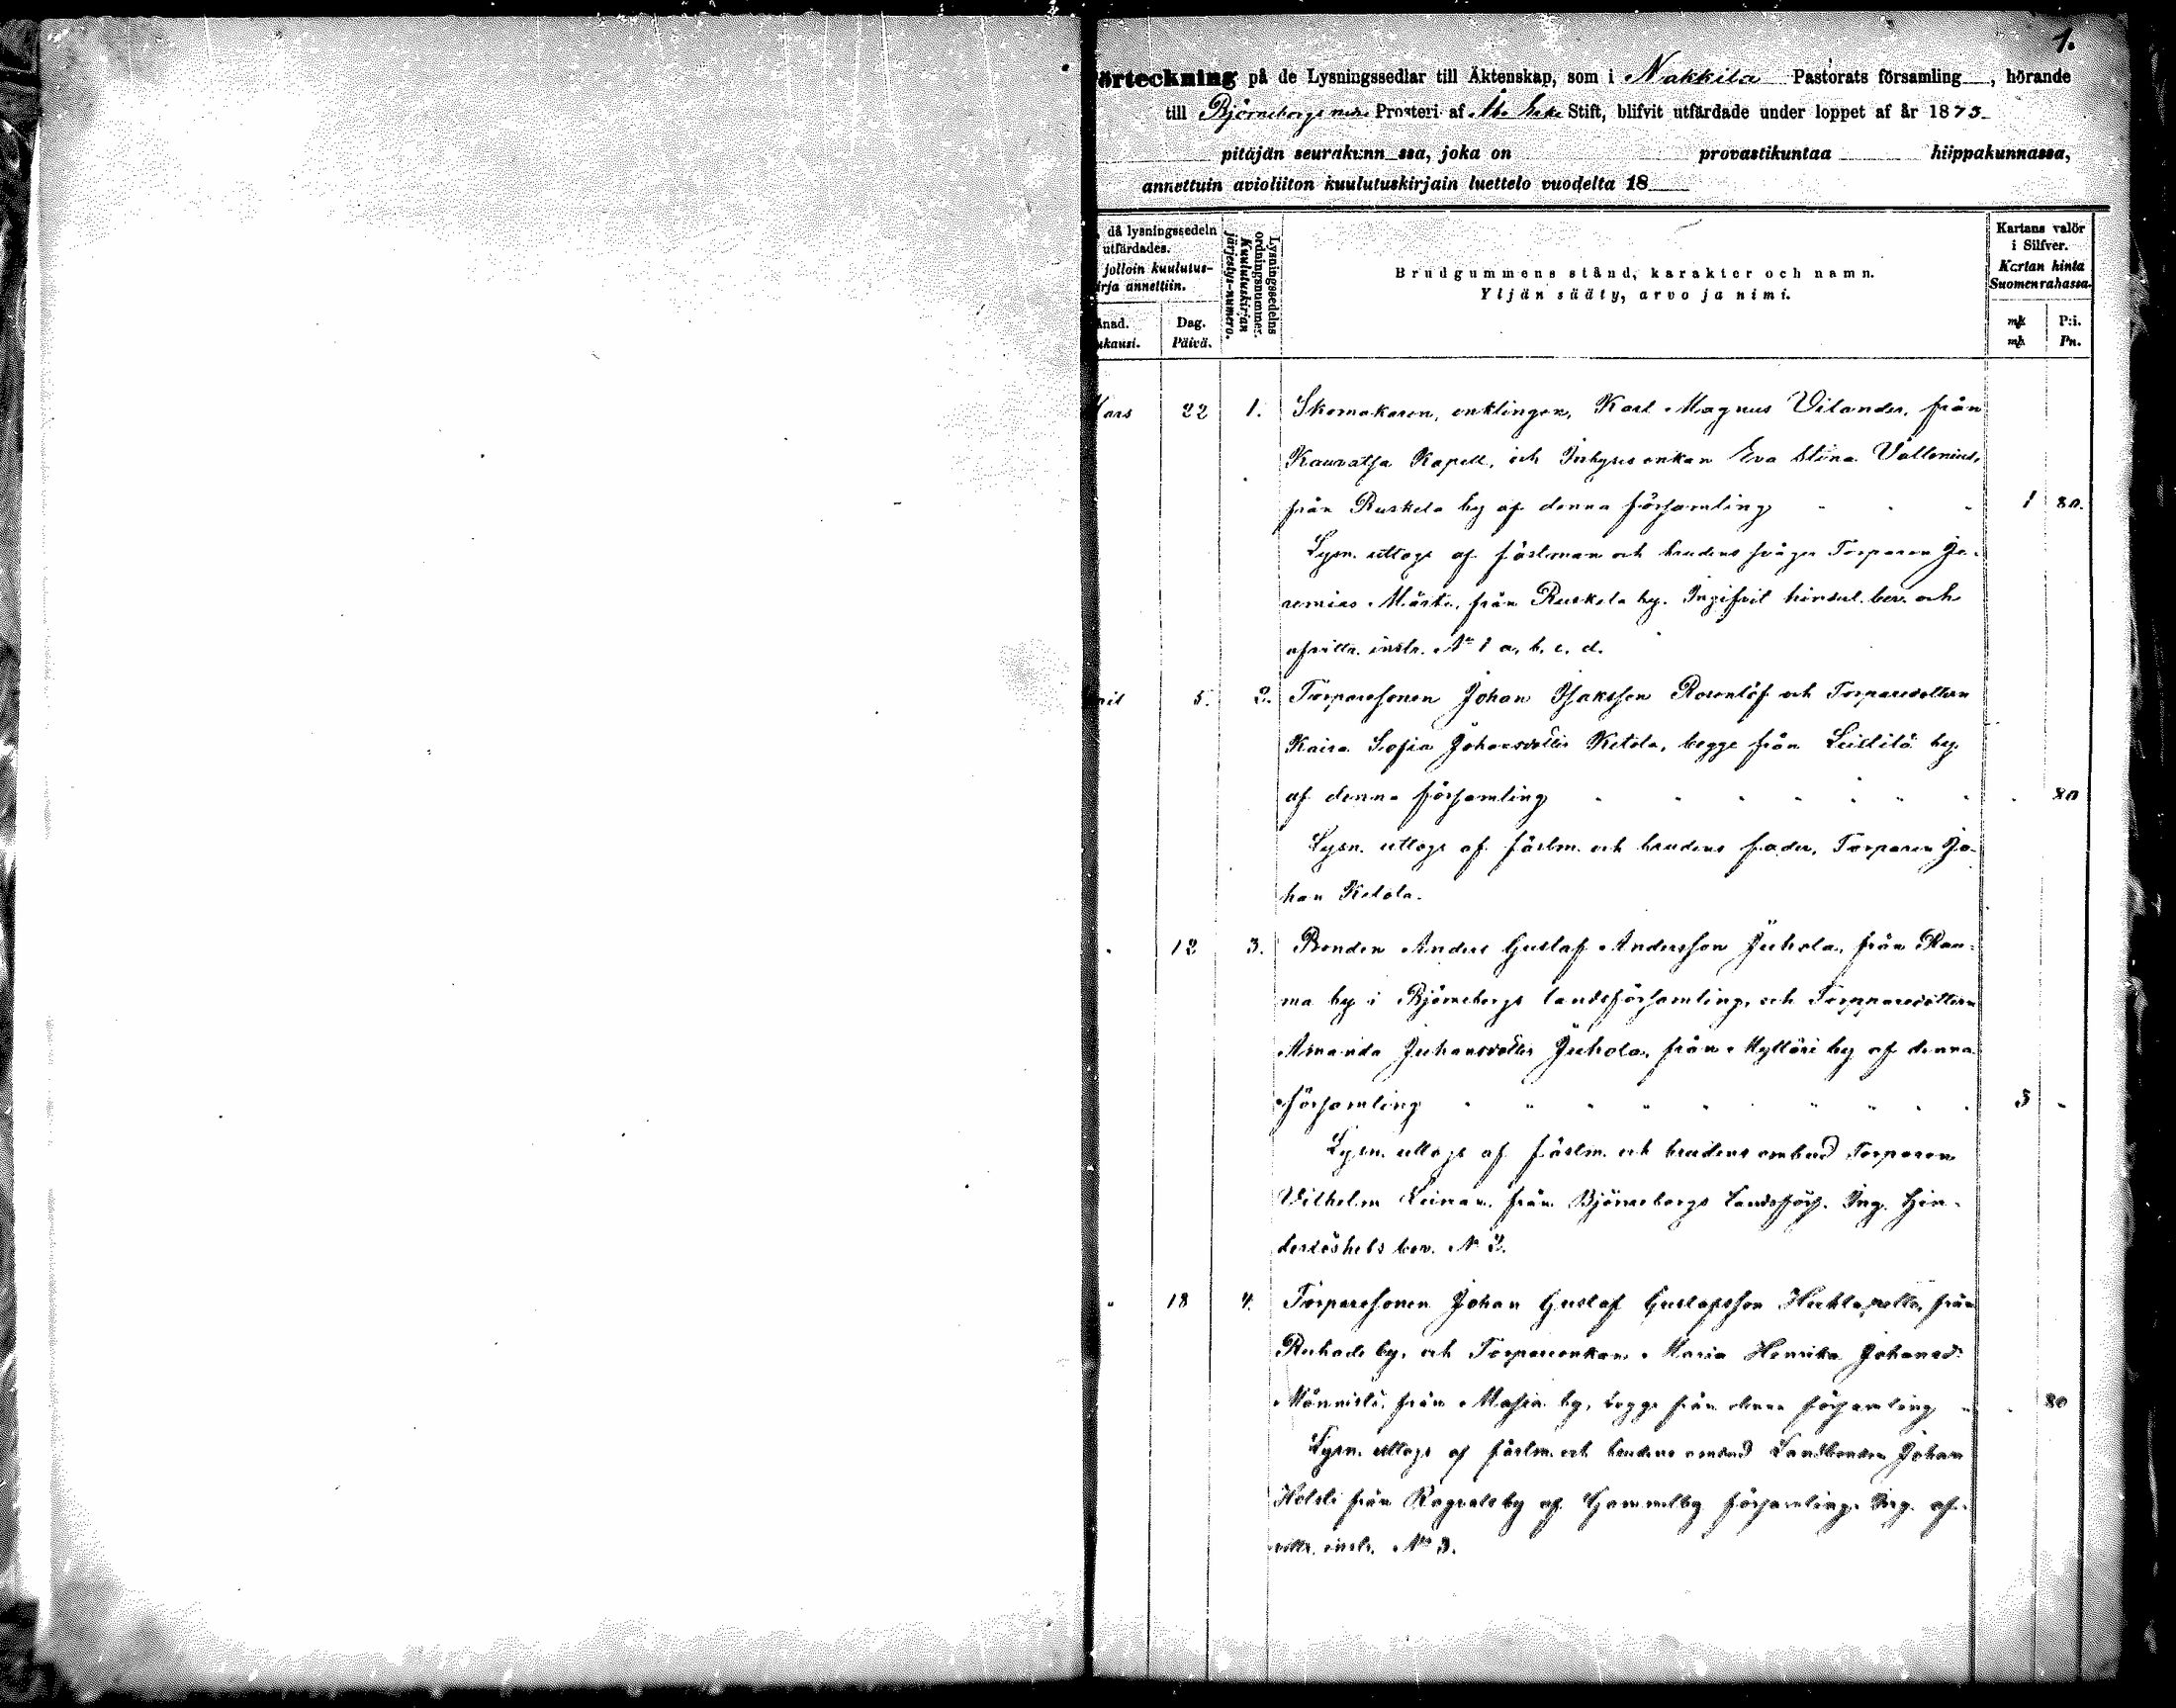 1.
örteckning på de Lysningssedlar till Äktenskap, som i Nakkila Pastorats församling, hörande
till Björneborgs nedre Prosteri af Åbo Erke Stift, blifvit utfärdade under loppet af år 1875
pitäjän seurakunn ssa, joka on provastikuntaa hiippakunnassa,
annettuin avioliiton kuulutuskirjain luettelo vuodelta 18
då lysningssedeln
utfärdades.
jolloin kuulutus-
irja annettiin.
Lysningssedelns
ordningsnummer.
Kuulutuskirjan
järjestys-numero.
Brudgummens stånd, karakter och namn.
Yljän sääty, arvo ja nimi.
Kartans valör
i Silfver.
Kartan hinta
Suomenrahassa.
ånad. Dag. mk P:i.
ukausi. Päivä. mk Pn.
Mars 22 1. Skomakaren, enklingen, Karl Magnus Vilander, från
Kauvatsa Kapell, och Inhyses enkan Eva Stina Vallenius,
från Ruskela by af denna församling 1 80.
Lysn. uttogs af fästman och brudens svåger Torparen Je-
remias Mäski, från Ruskela by. Ingifvit hindersl. bev. och
afvittr. instr. No 1 a. b. c. d.
ril 5. 2. Torparesonen Johan Isaksson Rosenlöf och Torparedottern
Kaisa Sofia Johansdotter Ketola, begge från Leistilä by
af denna församling 80
Lysn. uttogs af fästm. och brudens fader, Torparen Jo-
han Ketola.
" 12 3. Bonden Anders Gustaf Andersson Juhola, från Rau-
ma by i Björneborgs landsförsamling, och Torpparedottern
Amanda Juhansdotter Juhola, från Mylläri by af denna
församling 3 "
Lysn. uttogs af fästm. och brudens ombud Torparen
Vilhelm Leinan från Björneborgs Landsförs. Ing. Hin-
derslöshets bev. No 2.
" 18 4. Torparesonen Johan Gustaf Gustafsson Huhtapelto, från
Ruhade by, och Torpareenkan Maria Henrika Johansd:
Männistö, från Masia by, begge från denna församling 80
Lysn. uttogs af fästm. och brudens ombud Landbonden Johan
Holsti från Ragvals by af Gammelby församling. Ing. af-
vittr. instr. No 3.